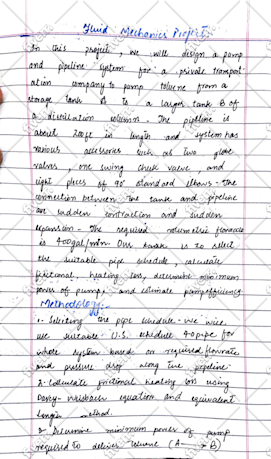 Fluid Mechanics Project:
In this project, we will design a pump
and pipeline system for a private transport
ation company to pump toluene from a
storage tank A to a larger tank B of
a distillation column. The pipeline is
about 200ft in length and system has
various accessories such as two globe
valves, one swing check valve, and
eight pieces of 90° standard elbows - The
connection between the tank and pipeline
are sudden contraction and sudden
expansion - The required volumetric flowrate
is 400gal/min. Our task is to select
the suitable pipe schedule, calculate
frictional, heating loss, determine minimum
power of pump, and estimate pump efficiency
Methodology:-
1. Selecting the pipe schedule - we will
use suitable U.S. schedule 40 pipe for
whole system based on required flowrate
and pressure drop along the pipeline
2. Calculate frictional heating loss using
Darcy-Weisbach equation and equivalent
length method.
3. Determine minimum power of pump
required to deliver toluene (A- → B)